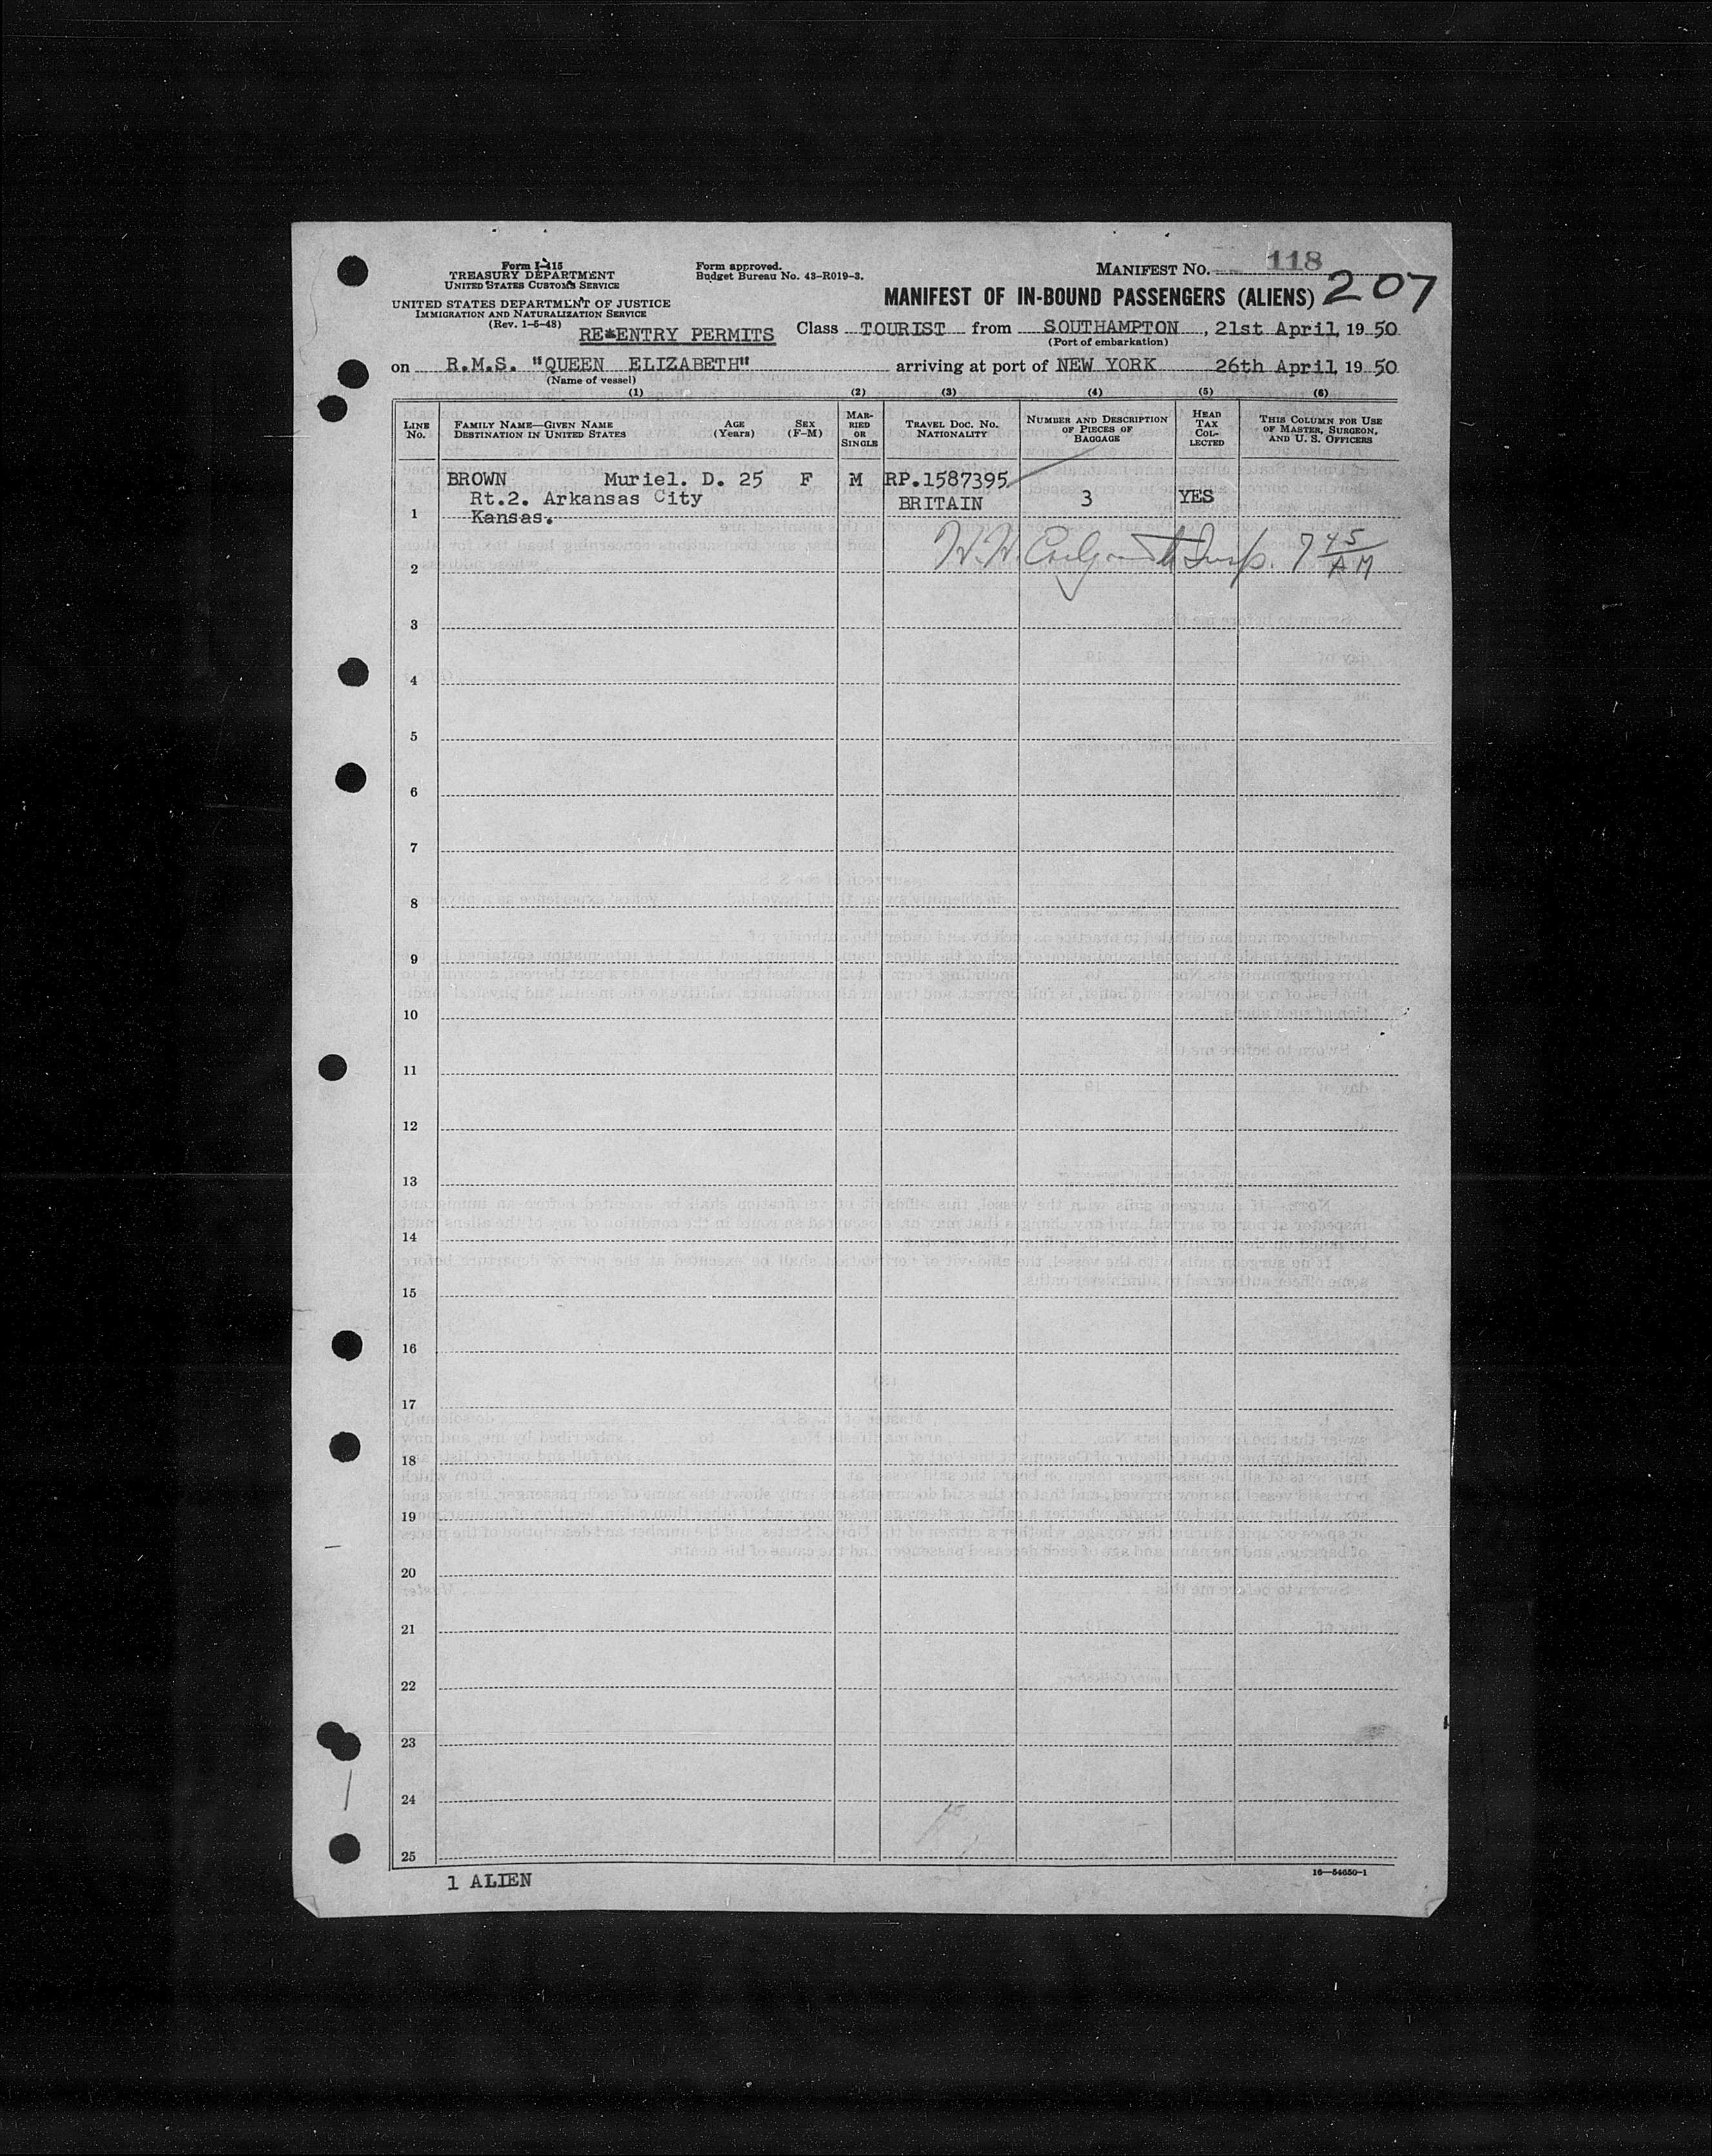 Form I-415
TREASURY DEPARTMENT
UNITED STATES CUSTOMS SERVICE
UNITED STATES DEPARTMENT OF JUSTICE
IMMIGRATION AND NATURALIZATION SERVICE
(Rev. 1-5-48)
Form approved.
Budget Bureau No. 43-R019-3.
MANIFEST NO. 118
207
MANIFEST OF IN-BOUND PASSENGERS (ALIENS)
RE-ENTRY PERMITS Class TOURIST from SOUTHAMPTON, 21st April, 1950
(Port of embarkation)
on R.M.S. "QUEEN ELIZABETH" arriving at port of NEW YORK 26th April, 1950
(Name of vessel)
(1) (2) (3) (4) (5) (6)
LINE No. FAMILY NAME—GIVEN NAME DESTINATION IN UNITED STATES AGE (Years) SEX (F-M) MARRIED OR SINGLE TRAVEL DOC. NO. NATIONALITY NUMBER AND DESCRIPTION OF PIECES OF BAGGAGE HEAD TAX COLLECTED THIS COLUMN FOR USE OF MASTER, SURGEON, AND U. S. OFFICERS
BROWN Muriel. D. 25 F M RP.1587395
Rt.2. Arkansas City BRITAIN 3 YES
1 Kansas.
Insp. 7 45 AM
2
3
4
5
6
7
8
9
10
11
12
13
14
15
16
17
18
19
20
21
22
23
24
25
1 ALIEN
16—54650-1